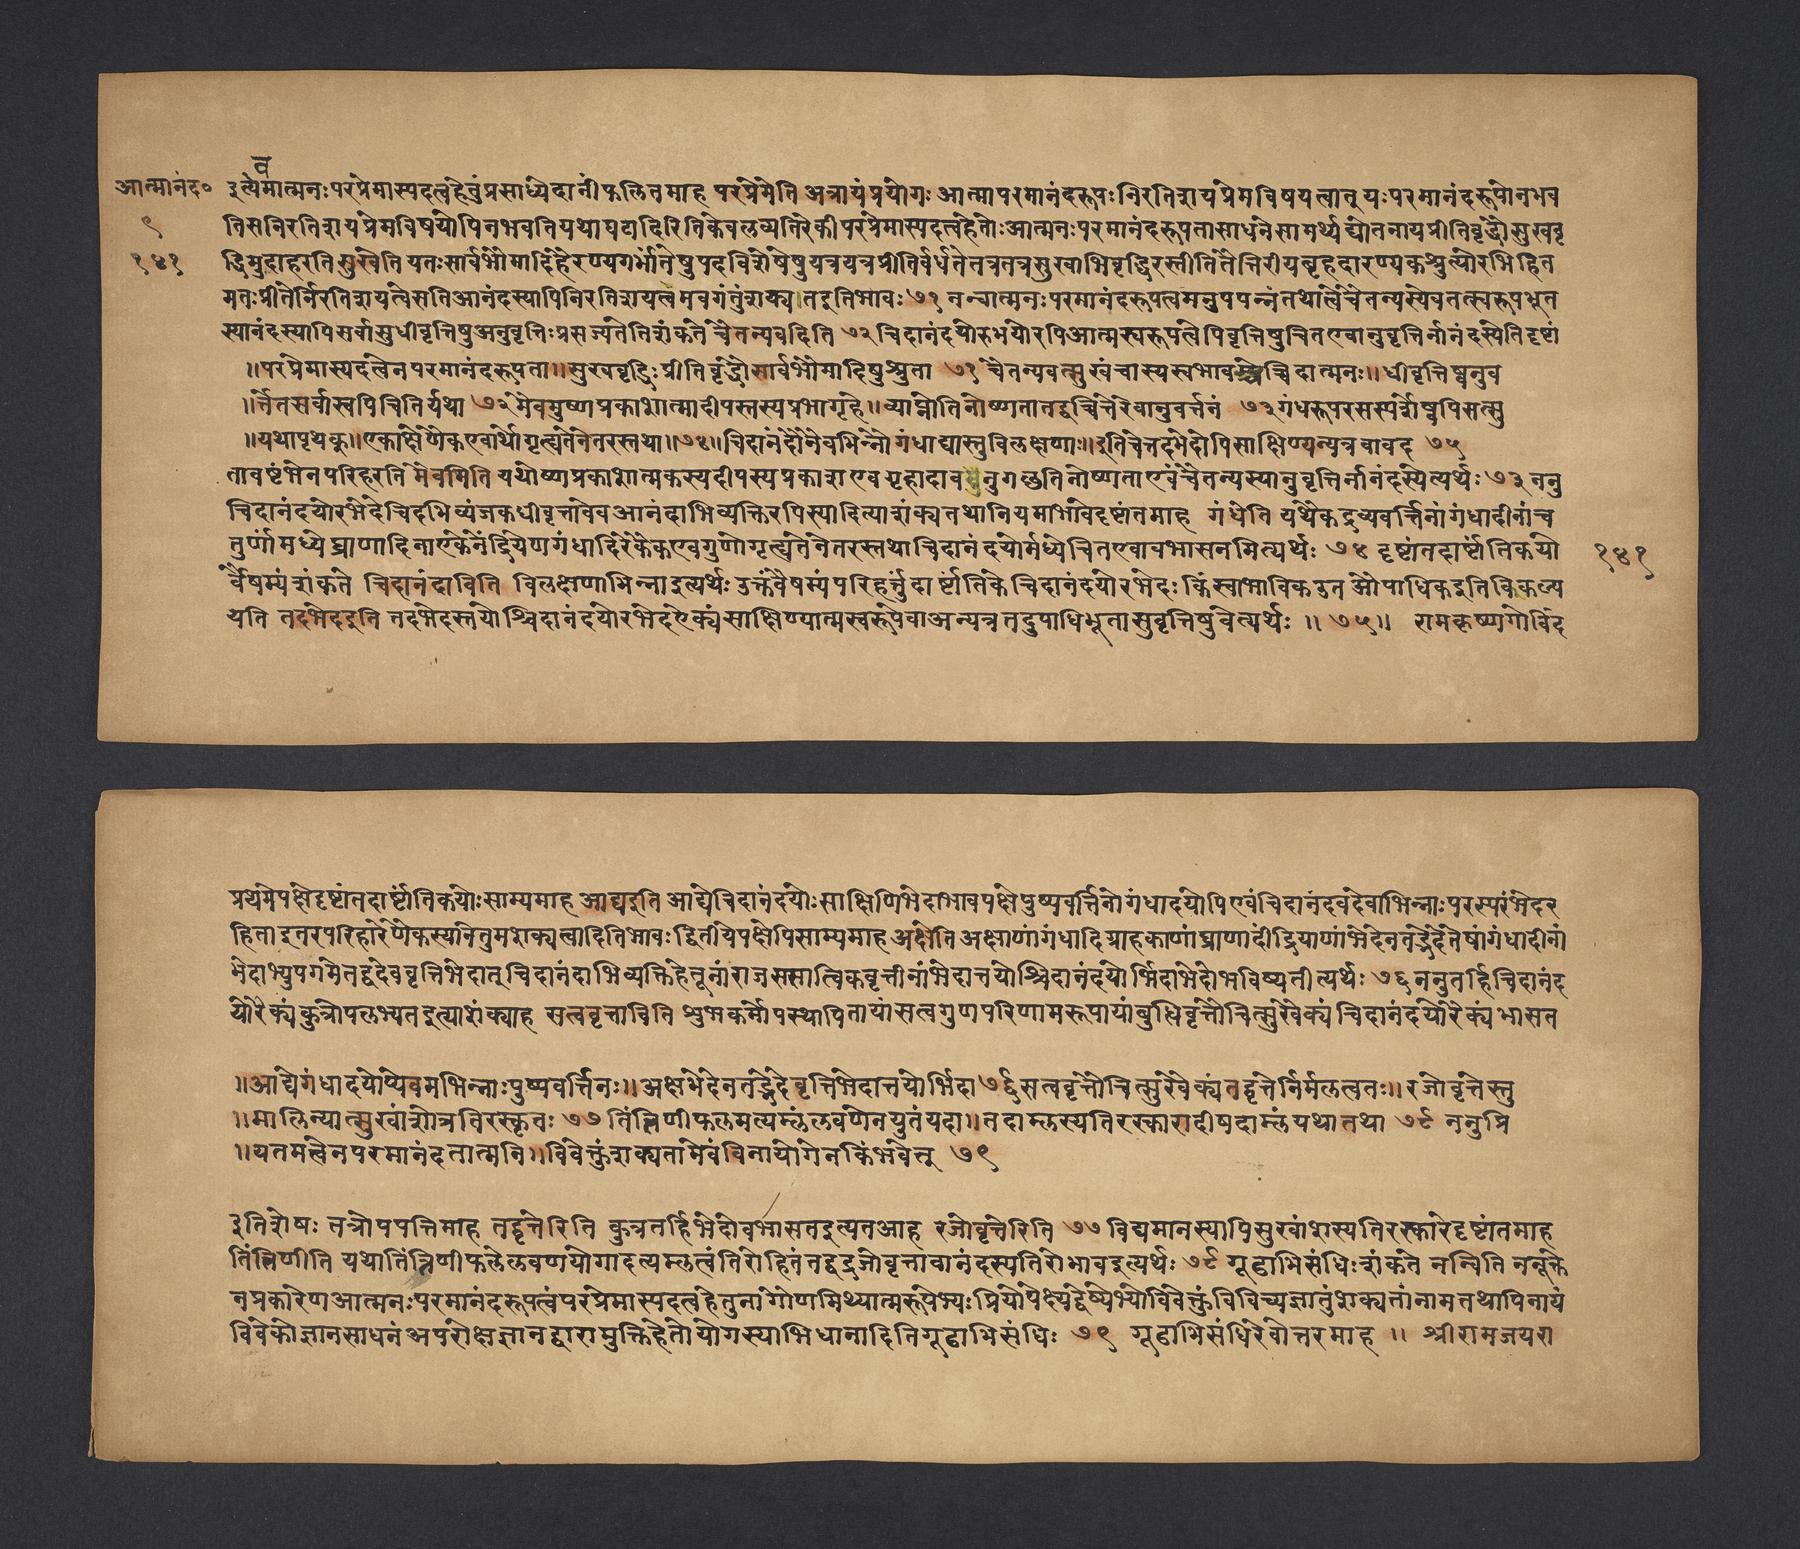 व
आत्मानंद०
९
१४१
इत्थमात्मनःपरप्रेमास्पदत्वहेतुंप्रसाध्येदानींफलितमाह परप्रेमेति अत्रायंप्रयोगः आत्मापरमानंदरूपःनिरतिशयप्रेमविषयत्वात् यःपरमानंदरूपोनभव
तिसनिरतिशयप्रेमविषयोपिनभवतियथाघटादिरितिकेवलव्यतिरेकी परप्रेमास्पदत्वहेतोःआत्मनःपरमानंदरूपतासाधनेसामर्थ्यद्योतनायप्रीतिवृद्धौसुखवृ
द्धिमुदाहरति सुखेति यतःसार्वभौमादिहैरण्यगर्भांतेषुपदविशेषेषुयत्रयत्रप्रीतिर्वर्धतेतत्रतत्रसुखाभिवृद्धिरस्तीतितैत्तिरीयबृहदारण्यकश्रुत्योरभिहित
मतःप्रीतेर्निरतिशयत्वेसतिआनंदस्यापिनिरतिशयत्वमवगंतुंशक्यतइतिभावः ७१ नन्वात्मनःपरमानंदरूपत्वमनुपपन्नंतथात्वेचैतन्यस्येवतत्स्वरूपभूत
स्यानंदस्यापिसर्वासुधीवृत्तिषुअनुवृत्तिःप्रसज्येतेतिशंकते चैतन्यवदिति ७२ चिदानंदयोरुभयोरपिआत्मस्वरूपत्वेपिवृत्तिषुचितएवानुवृत्तिर्नानंदस्येतिदृष्टां
॥परप्रेमास्पदत्वेनपरमानंदरूपता॥सुखवृद्धिःप्रीतिवृद्धौसार्वभौमादिषुश्रुता ७१ चैतन्यवत्सुखंचास्यस्वभावश्चेच्चिदात्मनः॥धीवृत्तिष्वनुव
॥र्त्तेतसर्वास्वपिचितिर्यथा ७२मैवमुष्णप्रकाशात्मादीपस्तस्यप्रभागृहे॥व्याप्नोतिनोष्णतातद्वच्चित्तेरेवानुवर्त्तनं ७३गंधरूपरसस्पर्शेष्वपिसत्सु
॥यथापृथक्॥एकाक्षेणैकएवार्थोगृह्यतेनेतरस्तथा॥७४॥चिदानंदौनैवभिन्नौगंधाद्यास्तुविलक्षणाः॥इतिचेत्तदभेदोपिसाक्षिण्यन्यत्रवावद ७५
तावष्टंभेनपरिहरति मैवमिति यथोष्णप्रकाशात्मकस्यदीपस्यप्रकाशएवगृहादावनुगच्छतिनोष्णताएवंचैतन्यस्यानुवृत्तिर्नानंदस्येत्यर्थः ७३ ननु
चिदानंदयोरभेदेचिदभिव्यंजकधीवृत्तावेवआनंदाभिव्यक्तिरपिस्यादित्याशंक्यतथानियमाभावेदृष्टांतमाह गंधेति यथैकद्रव्यवर्त्तिनांगंधादीनांच
तुर्णांमध्येघ्राणादिनाएकेनेंद्रियेणगंधादिरेकैकएवगुणोगृह्यतेनेतरस्तथाचिदानंदयोर्मध्येचितएवावभासनमित्यर्थः ७४ दृष्टांतदार्ष्टांतिकयो
र्वैषम्यंशंकते चिदानंदाविति विलक्षणाभिन्नाइत्यर्थः उक्तंवैषम्यंपरिहर्त्तुंदार्ष्टांतिकेचिदानंदयोरभेदः किंस्वाभाविकउतऔपाधिकइतिविकल्प
यति तदभेदइति तदभेदस्तयोश्चिदानंदयोरभेदऐक्यंसाक्षिण्यात्मस्वरूपेवाअन्यत्रतदुपाधिभूतासुवृत्तिषुवेत्यर्थः ॥ ७५॥ रामकृष्णगोविंद
१४१
प्रथमेपक्षेदृष्टांतदार्ष्टांतिकयोःसाम्यमाह आद्यइति आद्येचिदानंदयोःसाक्षिणिभेदाभावपक्षेपुष्पवर्त्तिनोगंधादयोपिएवंचिदानंदवदेवाभिन्नाःपरस्परंभेदर
हिताइतरपरिहारेणैकस्यनेतुमशक्यत्वादितिभावः द्वितीयेपक्षेपिसाम्यमाह अक्षेति अक्षाणांगंधादिग्राहकाणांघ्राणादींद्रियाणांभेदेनतद्भेदेतेषांगंधादीनां
भेदाभ्युपगमेतद्वदेववृत्तिभेदात्चिदानंदाभिव्यक्तिहेतूनांराजससात्विकवृत्तीनांभेदात्तयोश्चिदानंदयोर्भिदाभेदोभविष्यतीत्यर्थः ७६ ननुतर्हिचिदानंद
योरैक्यंकुत्रोपलभ्यतइत्याशंक्याह सत्ववृत्ताविति शुभकर्मोपस्थापितायांसत्वगुणपरिणामरूपायांबुधिवृत्तौचित्सुखैक्यंचिदानंदयोरैक्यंभासत
॥आद्येगंधादयोप्येवमभिन्नाःपुष्पवर्त्तिनः॥अक्षभेदेनतद्भेदेवृत्तिभेदात्तयोर्भिदा७६सत्ववृत्तौचित्सुखैक्यंतद्वृत्तेर्निर्मलत्वतः॥रजोवृत्तेस्तु
॥मालिन्यात्सुखांशोत्रतिरस्कृतः ७७ तिंत्रिणीफलमत्यम्लंलवणेनयुतंयदा॥तदाम्लस्यतिरस्कारादीषदाम्लंयथातथा ७८ ननुप्रि
॥यतमत्वेनपरमानंदतात्मनि॥विवेक्तुंशक्यतामेवंविनायोगेनकिंभवेत् ७९
इतिशेषः तत्रोपपत्तिमाह तद्वृत्तेरिति कुत्रतर्हिभेदोवभासतइत्यतआह रजोवृत्तेरिति ७७ विद्यमानस्यापिसुखांशस्यतिरस्कारेदृष्टांतमाह
तिंत्रिणीति यथातिंत्रिणीफलेलवणयोगादत्यम्लत्वंतिरोहितंतद्वद्रजोवृत्तावानंदस्यतिरोभावइत्यर्थः ७८ गूढाभिसंधिःशंकते नन्विति ननूक्ते
नप्रकारेणआत्मनःपरमानंदरूपत्वंपरप्रेमास्पदत्वहेतुनागौणमिथ्यात्मरूपेभ्यःप्रियोपेक्ष्यद्वेष्येभ्योविवेक्तुंविविच्यज्ञातुंशक्यतांनामतथापिनायं
विवेकोज्ञानसाधनंअपरोक्षज्ञानद्वारामुक्तिहेतोर्योगस्याभिधानादितिगूढाभिसंधिः ७९ गूढाभिसंधिरेवोत्तरमाह ॥ श्रीरामजयरा